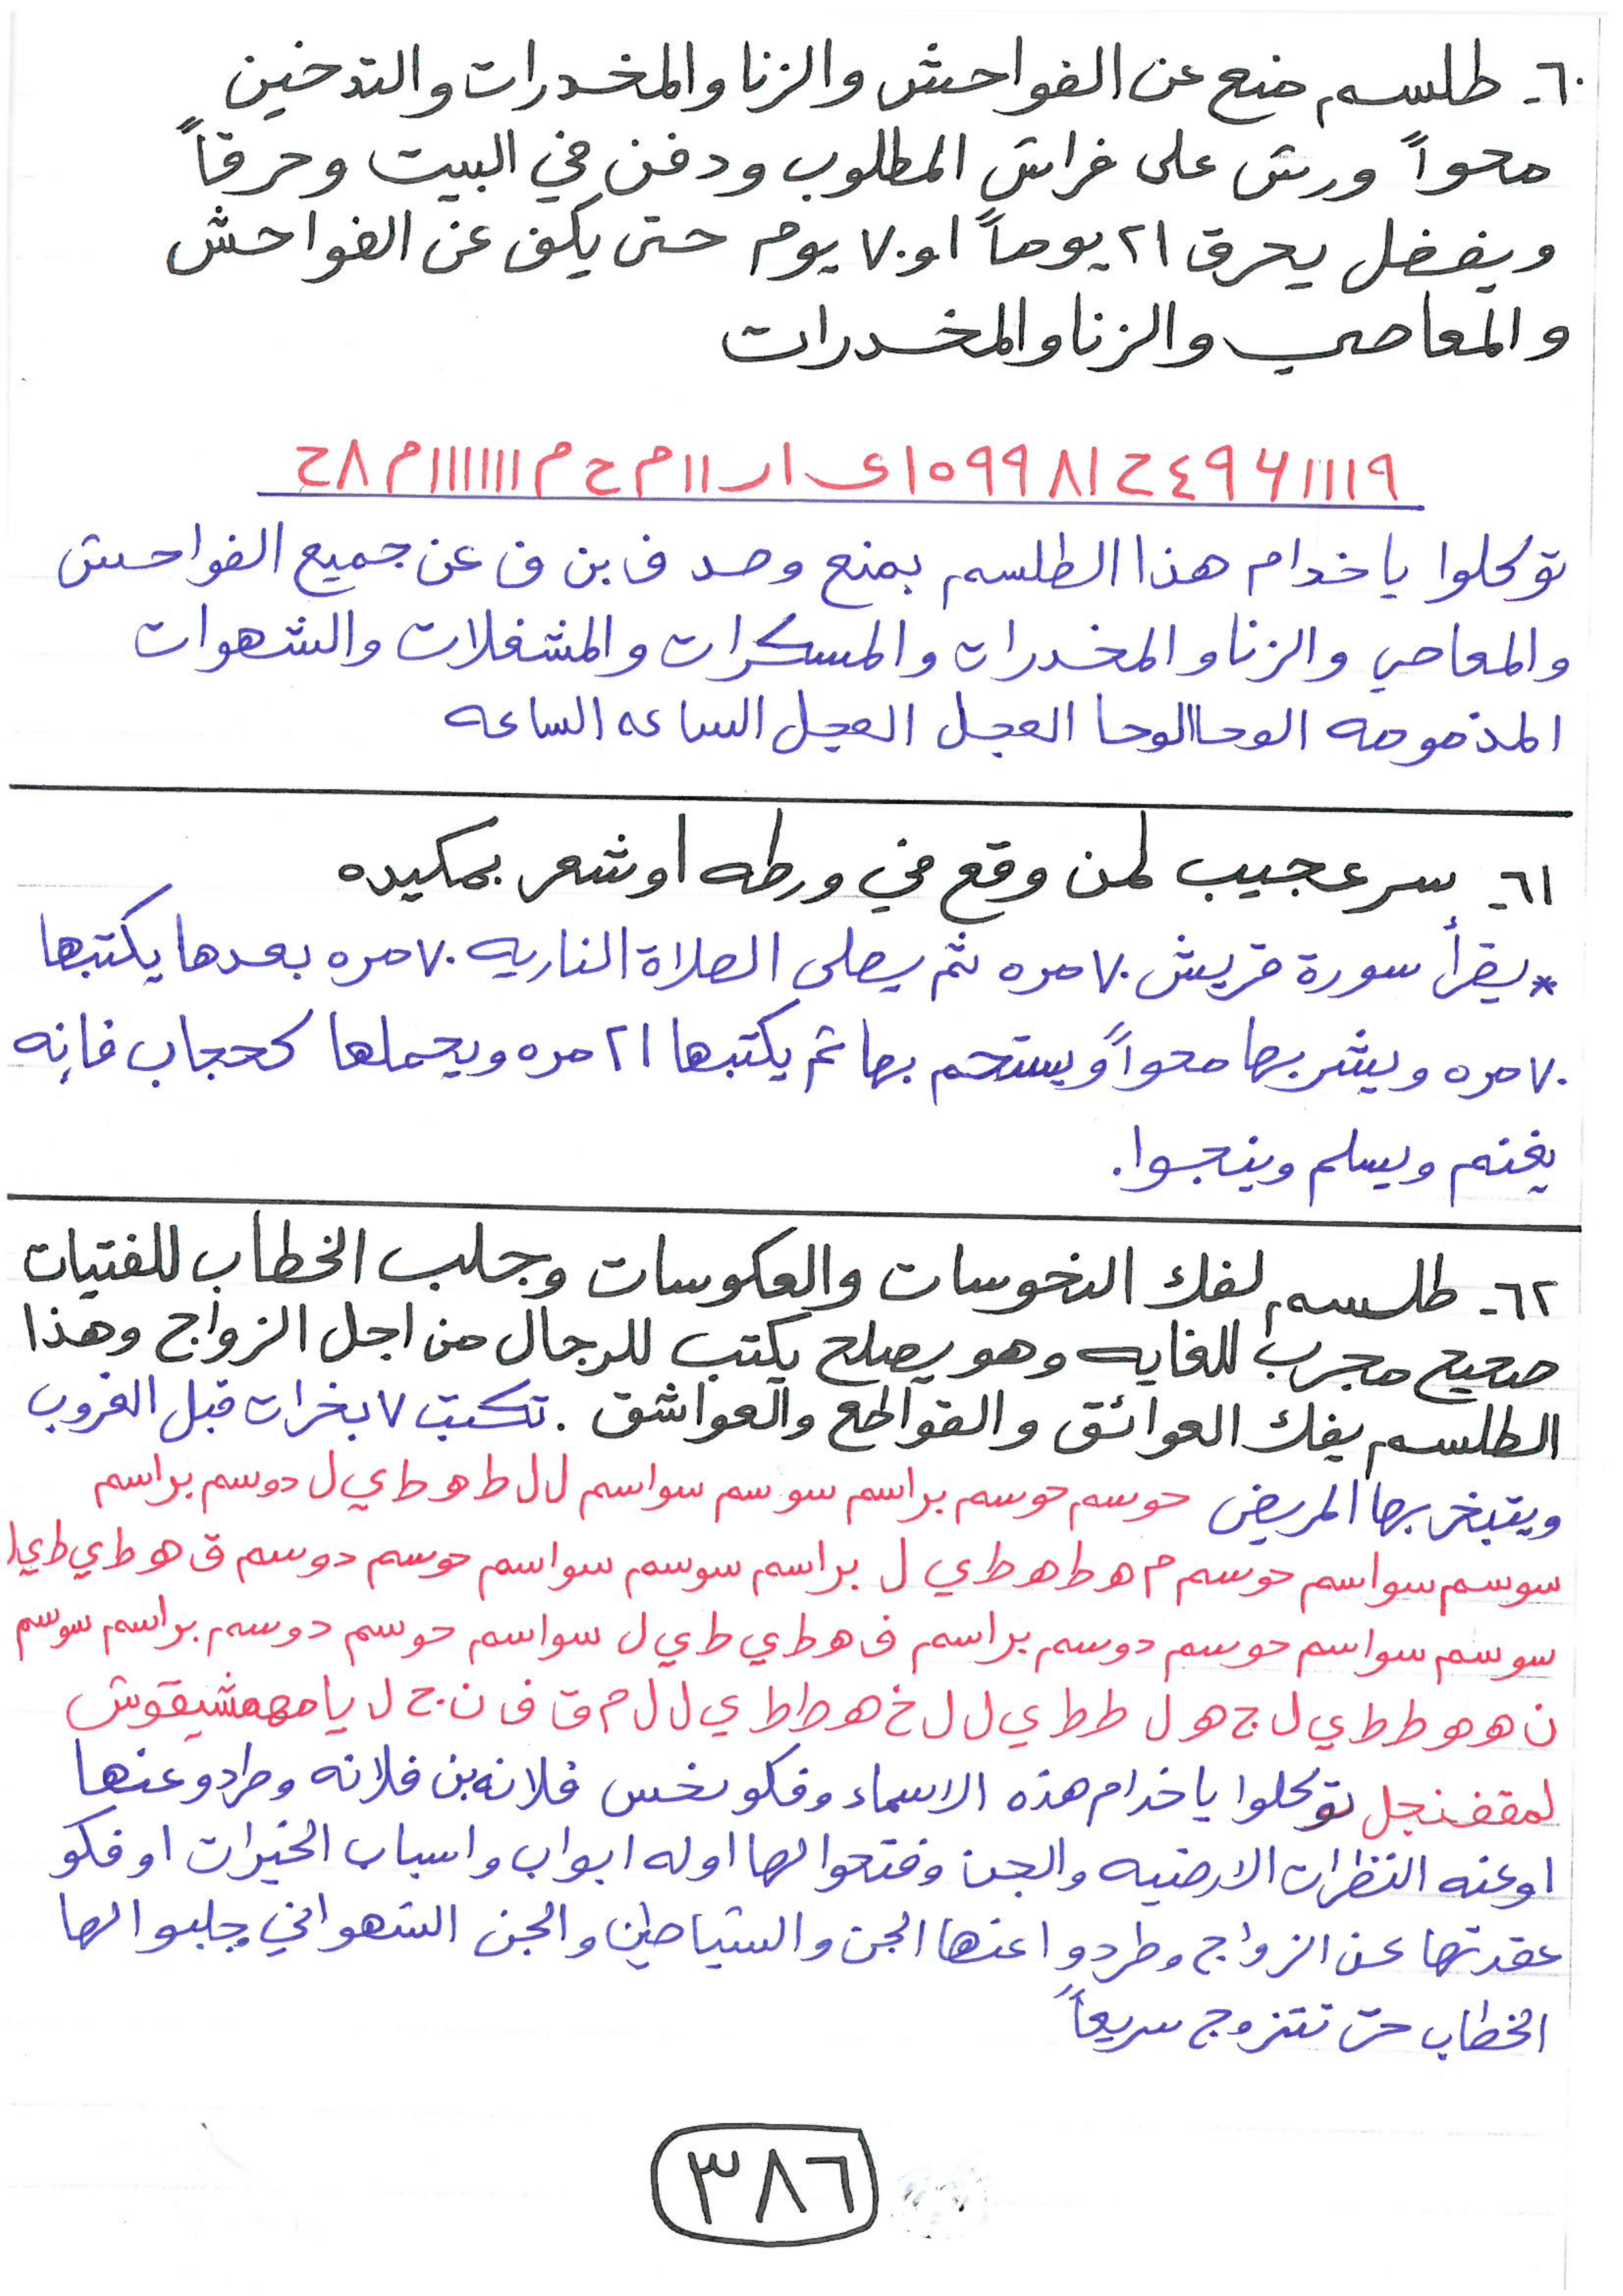 ٦٠- طلسم منع عن الفواحش والزنا والمخدرات والتدخين
محواً ورش على فراش المطلوب ودفن في البيت وحرقاً
ويفضل يحرق ٢١ يوماً او ٧٠ يوم حتى يكف عن الفواحش
والمعاصي والزنا والمخدرات
توكلوا ياخدام هذا الطلسم بمنع وصد ف بن ف عن جميع الفواحش
والمعاصي والزنا والمخدرات والمسكرات والمشغلات والشهوات
المذمومه الوحا الوحا العجل العجل الساعه الساعه
٦١- سر عجيب لمن وقع في ورطه او شعر بمكيده
*يقرأ سورة قريش ٧٠ مره ثم يصلي الصلاة الناريه ٧٠ مره بعدها يكتبها
٧٠ مره ويشربها محواً ويستحم بها ثم يكتبها ٢١ مره ويحملها كحجاب فإنه
يغنم ويسلم وينجوا.
٦٢- طلسم لفك النحوسات والعكوسات وجلب الخطاب للفتيات
صحيح مجرب للغايه وهو يصلح يكتب للرجال من اجل الزواج وهذا
الطلسم يفك العوائق والقواطع والعواشق . تكتب ٧ بخرات قبل الغروب
ويتبخر بها المريض حوسم حوسم براسم سوسم سواسم ل ل ط ه ط ي ل دوسم براسم
سوسم سواسم حوسم م ه ط ه ط ي ل براسم سوسم سواسم حوسم دوسم ق ه ط ي ط ي ل
سوسم سواسم حوسم دوسم براسم ف ه ط ي ط ي ل سواسم حوسم دوسم براسم سوسم
ن ه ه ط ط ي ل ج ه ل ط ط ي ل ل خ ه ط ط ي ل ل م ق ف ن ج ل يا مهمشيقوش
لمقفنجل توكلوا ياخدام هذه الاسماء وفكو نحس فلانه بن فلانه وطردو عنها
اوعنه النظرات الارضيه والجن وفتحوا لها اوله ابواب واسباب الخيرات اوفكو
عقدتها عن الزواج وطردوا عنها الجن والشياطين والجن الشهواني وجلبوا لها
الخطاب حتى تتزوج سريعاً
٣٨٦